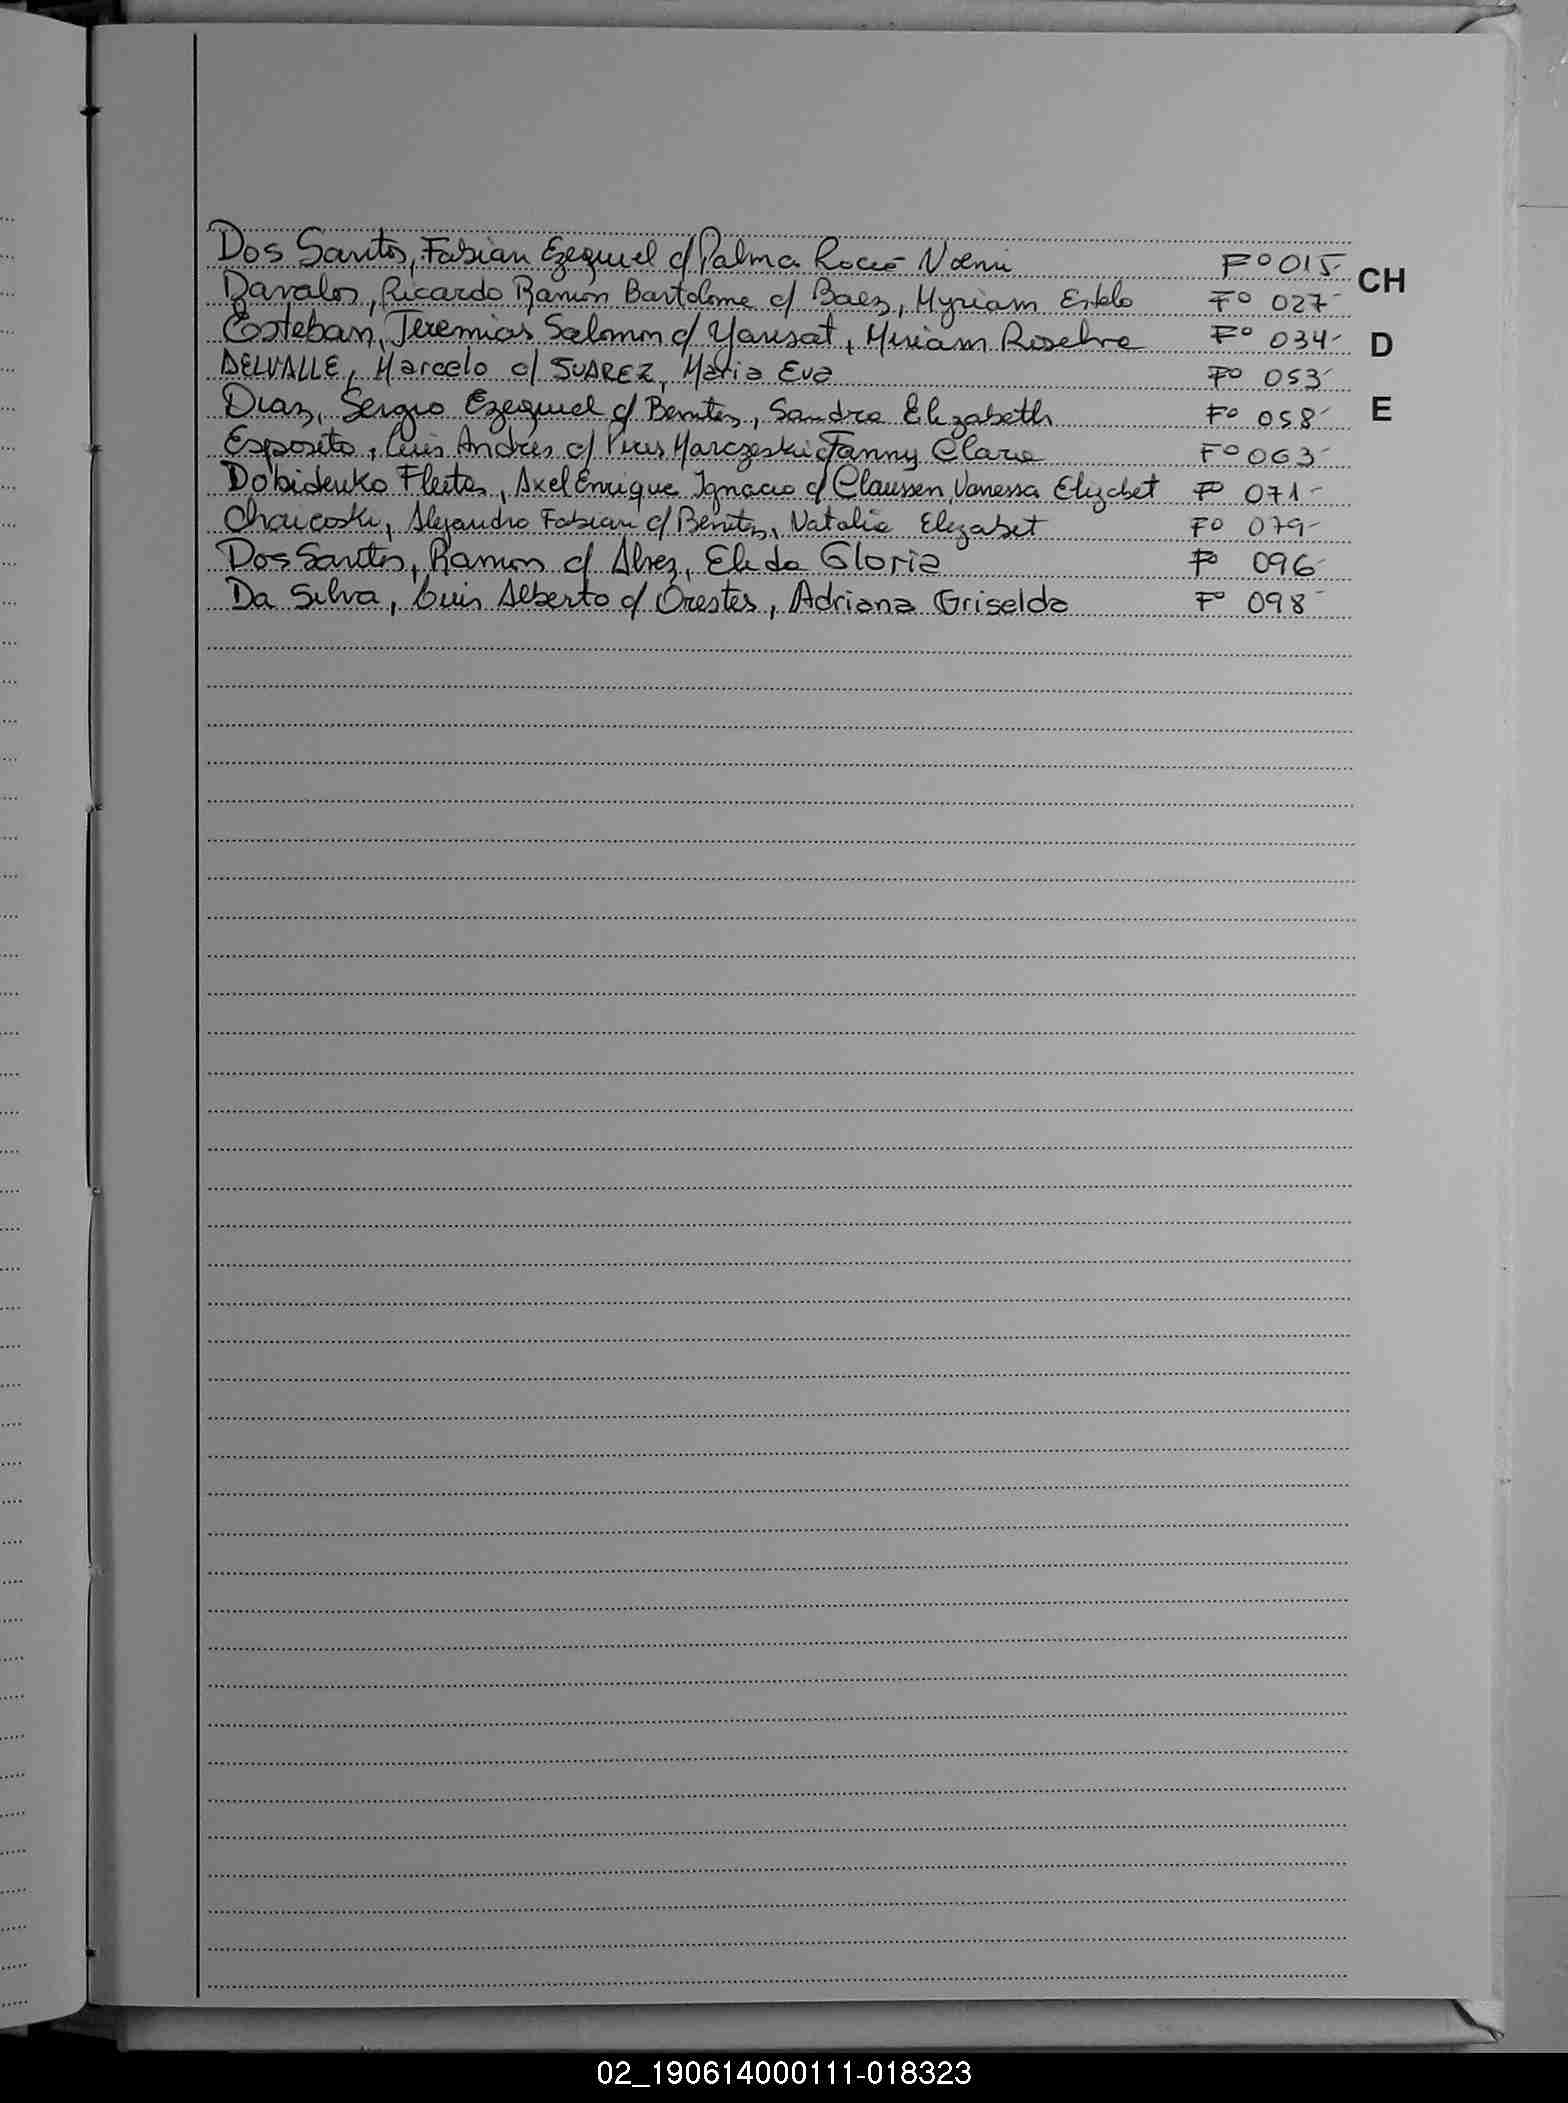 Dos Santos, Fabian Ezequiel c/ Palma Rocio Noemi F° 015- CH
Davalos, Ricardo Ramon Bartolome c/ Baez, Myriam Estela F° 027-
Esteban, Jeremias Salomon c/ Yansat, Miriam F° 034- D
DELVALLE, Marcelo c/ SUAREZ, Maria Eva F° 053-
Diaz, Sergio Ezequiel c/ Benitez, Sandra Elizabeth F° 058- E
Esposito, Luis Andres c/ Fanny Clara F° 063-
Dobidenko Fleitas, Axel Enrique Ignacio c/ Claussen, Vanessa Elizabet F° 071-
Alejandro Fabian c/ Benitez, Natalia Elizabet F° 079-
Dos Santos, Ramon c/ Alvez, Elida Gloria F° 096-
Da Silva, Luis Alberto c/ Orestes, Adriana Griselda F° 098-
02_190614000111-018323